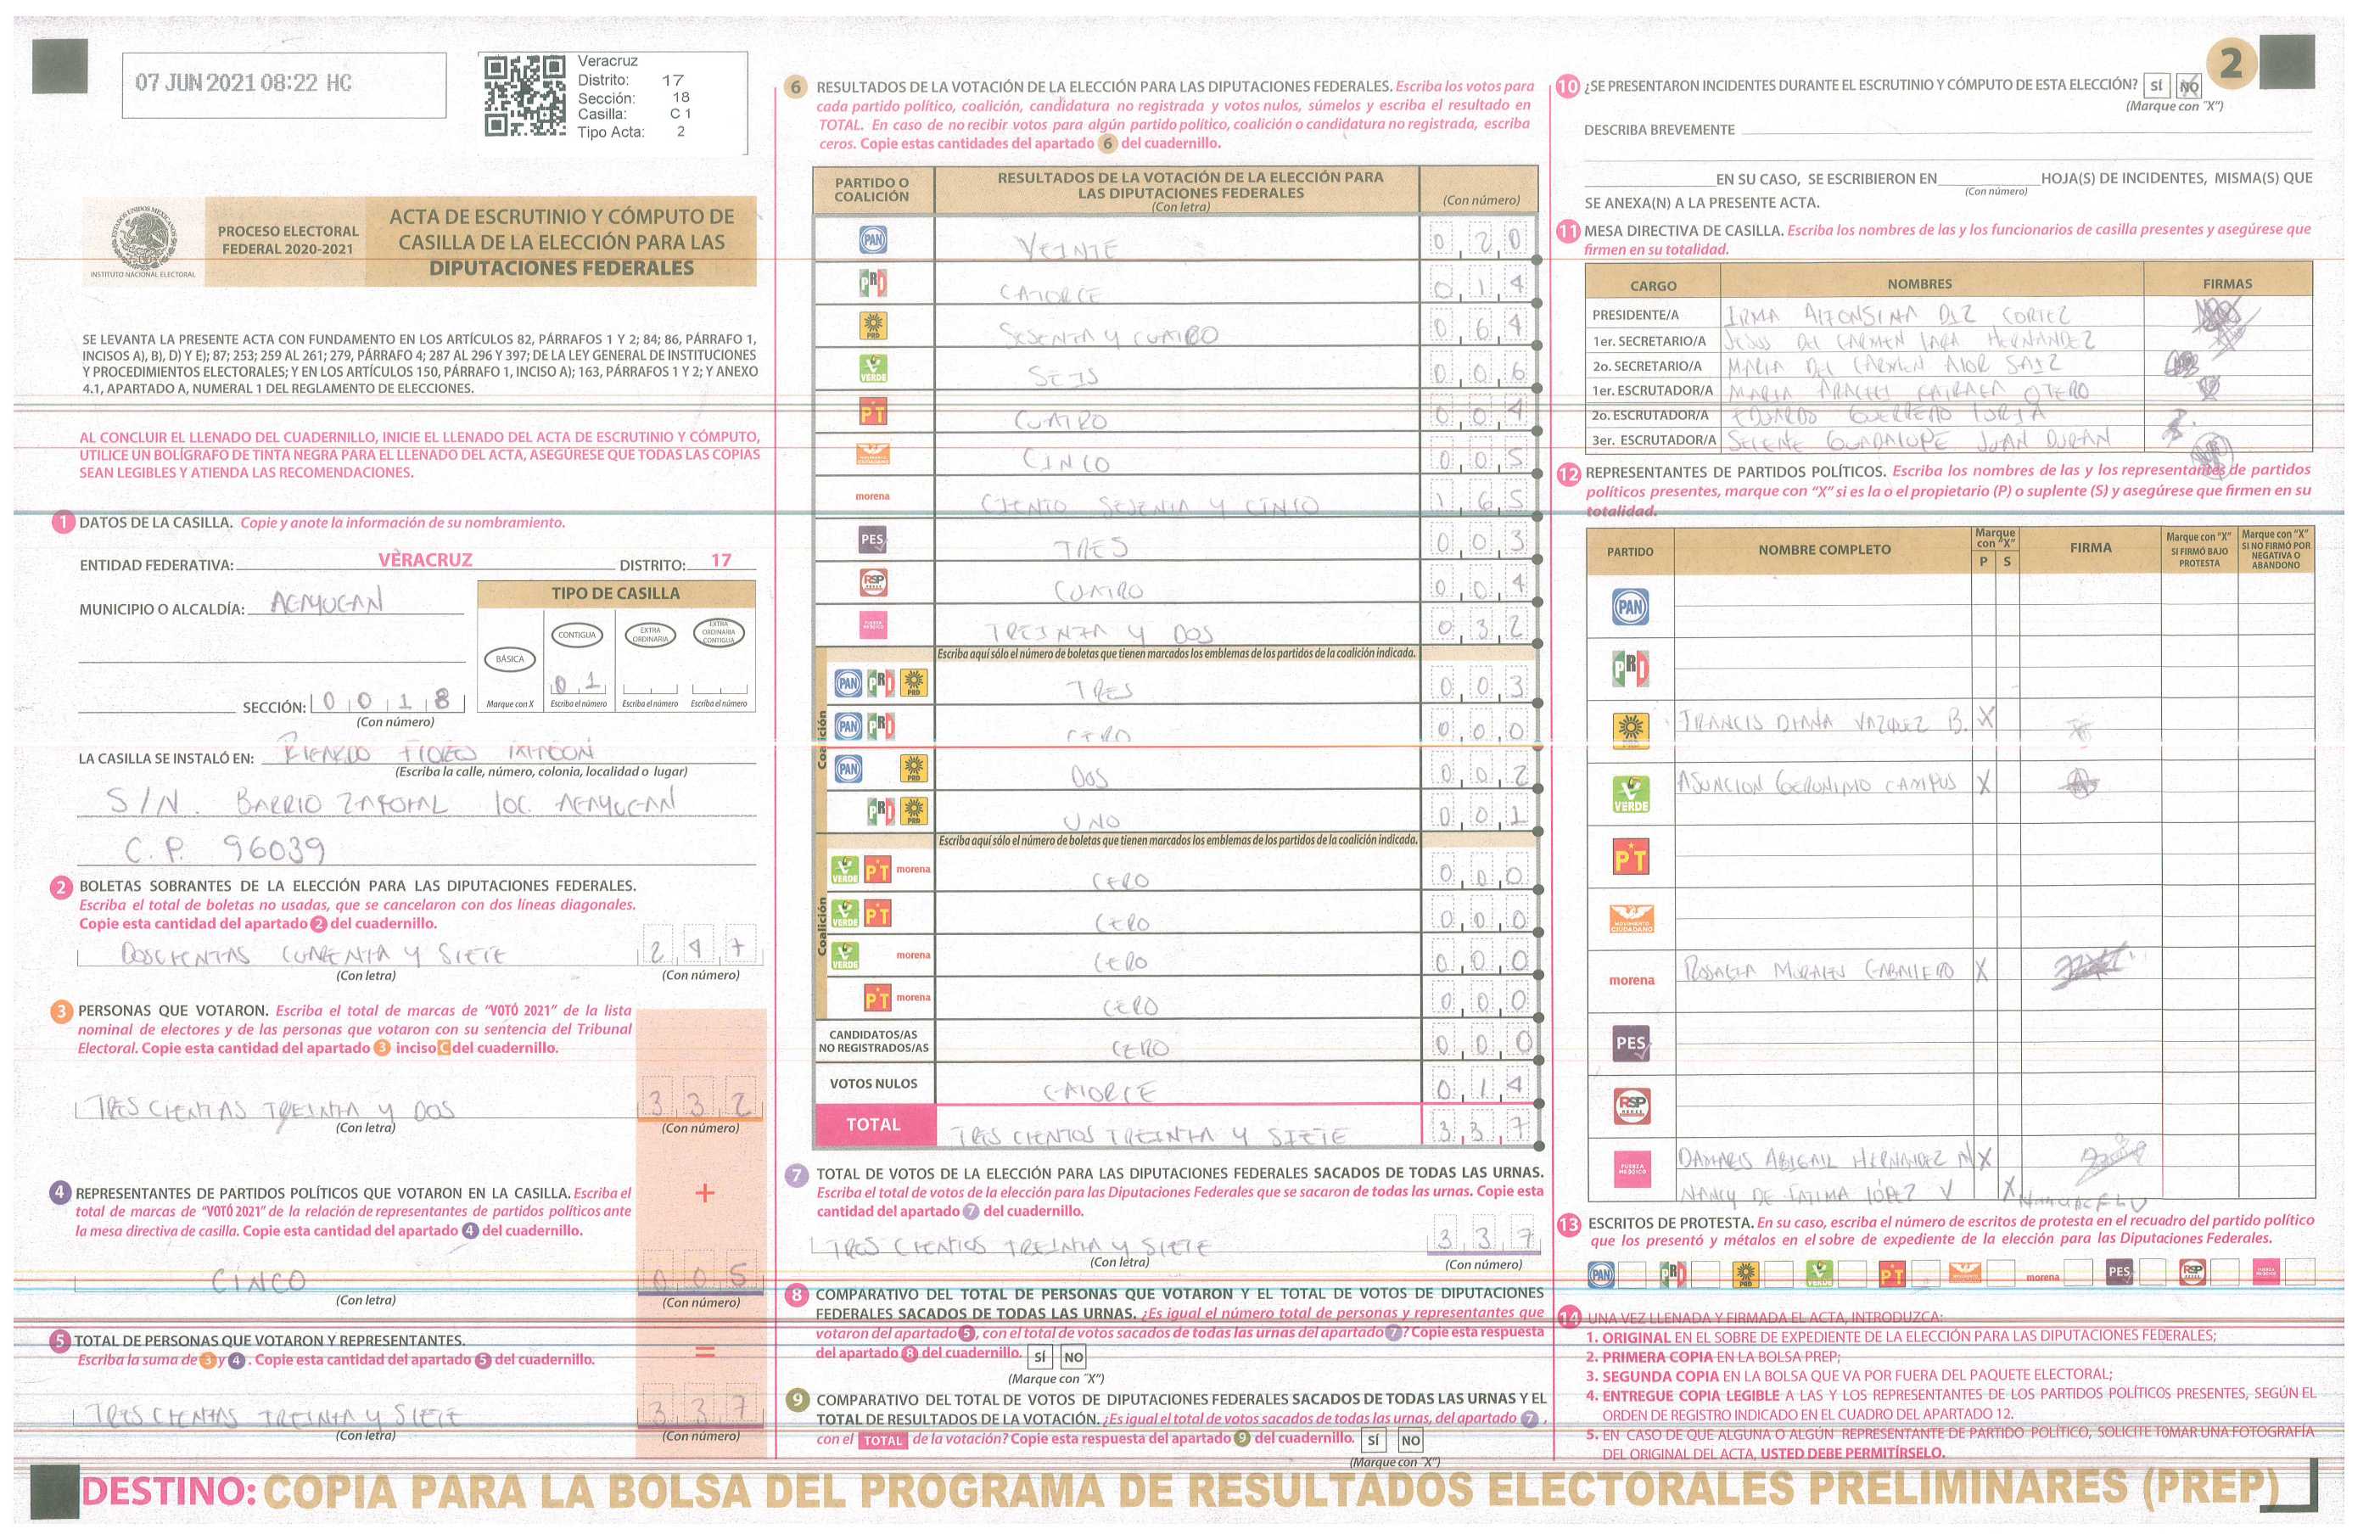 07 JUN 2021 08:22 HC
Veracruz
Distrito: 17
Sección: 18
Casilla: C 1
Tipo Acta: 2
INSTITUTO NACIONAL ELECTORAL
PROCESO ELECTORAL
FEDERAL 2020-2021
ACTA DE ESCRUTINIO Y CÓMPUTO DE
CASILLA DE LA ELECCIÓN PARA LAS
DIPUTACIONES FEDERALES
SE LEVANTA LA PRESENTE ACTA CON FUNDAMENTO EN LOS ARTÍCULOS 82, PÁRRAFOS 1 Y 2; 84; 86, PÁRRAFO 1,
INCISOS A), B), D) Y E); 87; 253; 259 AL 261; 279, PÁRRAFO 4; 287 AL 296 Y 397; DE LA LEY GENERAL DE INSTITUCIONES
Y PROCEDIMIENTOS ELECTORALES; Y EN LOS ARTÍCULOS 150, PÁRRAFO 1, INCISO A); 163, PÁRRAFOS 1 Y 2; Y ANEXO
4.1, APARTADO A, NUMERAL 1 DEL REGLAMENTO DE ELECCIONES.
AL CONCLUIR EL LLENADO DEL CUADERNILLO, INICIE EL LLENADO DEL ACTA DE ESCRUTINIO Y CÓMPUTO,
UTILICE UN BOLÍGRAFO DE TINTA NEGRA PARA EL LLENADO DEL ACTA, ASEGÚRESE QUE TODAS LAS COPIAS
SEAN LEGIBLES Y ATIENDA LAS RECOMENDACIONES.
1 DATOS DE LA CASILLA. Copie y anote la información de su nombramiento.
ENTIDAD FEDERATIVA: VERACRUZ DISTRITO: 17
MUNICIPIO O ALCALDÍA: ACAYUCAN
TIPO DE CASILLA
BÁSICA CONTIGUA EXTRA ORDINARIA EXTRA ORDINARIA CONTIGUA
0 1
Marque con X Escriba el número Escriba el número Escriba el número
SECCIÓN: 0 0 1 8
(Con número)
LA CASILLA SE INSTALÓ EN: RICARDO FLORES MAGON
(Escriba la calle, número, colonia, localidad o lugar)
S/N. BARRIO ZAPOTAL LOC. ACAYUCAN
C.P. 96039
2 BOLETAS SOBRANTES DE LA ELECCIÓN PARA LAS DIPUTACIONES FEDERALES.
Escriba el total de boletas no usadas, que se cancelaron con dos líneas diagonales.
Copie esta cantidad del apartado 2 del cuadernillo.
DOSCIENTAS CUARENTA Y SIETE 2 4 7
(Con letra) (Con número)
3 PERSONAS QUE VOTARON. Escriba el total de marcas de "VOTÓ 2021" de la lista
nominal de electores y de las personas que votaron con su sentencia del Tribunal
Electoral. Copie esta cantidad del apartado 3 inciso C del cuadernillo.
TRES CIENTAS TREINTA Y DOS 3 3 2
(Con letra) (Con número)
+
4 REPRESENTANTES DE PARTIDOS POLÍTICOS QUE VOTARON EN LA CASILLA. Escriba el
total de marcas de "VOTÓ 2021" de la relación de representantes de partidos políticos ante
la mesa directiva de casilla. Copie esta cantidad del apartado 4 del cuadernillo.
CINCO 0 0 5
(Con letra) (Con número)
=
5 TOTAL DE PERSONAS QUE VOTARON Y REPRESENTANTES.
Escriba la suma de 3 y 4. Copie esta cantidad del apartado 5 del cuadernillo.
TRES CIENTAS TREINTA Y SIETE 3 3 7
(Con letra) (Con número)
6 RESULTADOS DE LA VOTACIÓN DE LA ELECCIÓN PARA LAS DIPUTACIONES FEDERALES. Escriba los votos para
cada partido político, coalición, candidatura no registrada y votos nulos, súmelos y escriba el resultado en
TOTAL. En caso de no recibir votos para algún partido político, coalición o candidatura no registrada, escriba
ceros. Copie estas cantidades del apartado 6 del cuadernillo.
PARTIDO O COALICIÓN RESULTADOS DE LA VOTACIÓN DE LA ELECCIÓN PARA LAS DIPUTACIONES FEDERALES (Con letra) (Con número)
PAN VEINTE 0 2 0
PRI CATORCE 0 1 4
PRD SESENTA Y CUATRO 0 6 4
VERDE SEIS 0 0 6
PT CUATRO 0 0 4
CINCO 0 0 5
morena CIENTO SESENTA Y CINCO 1 6 5
PES TRES 0 0 3
RSP CUATRO 0 0 4
FUERZA MEXICO TREINTA Y DOS 0 3 2
Escriba aquí sólo el número de boletas que tienen marcados los emblemas de los partidos de la coalición indicada.
Coalición
PAN PRI PRD TRES 0 0 3
PAN PRI CERO 0 0 0
PAN PRD DOS 0 0 2
PRI PRD UNO 0 0 1
Escriba aquí sólo el número de boletas que tienen marcados los emblemas de los partidos de la coalición indicada.
Coalición
VERDE PT morena CERO 0 0 0
VERDE PT CERO 0 0 0
VERDE morena CERO 0 0 0
PT morena CERO 0 0 0
CANDIDATOS/AS NO REGISTRADOS/AS CERO 0 0 0
VOTOS NULOS CATORCE 0 1 4
TOTAL TRES CIENTOS TREINTA Y SIETE 3 3 7
7 TOTAL DE VOTOS DE LA ELECCIÓN PARA LAS DIPUTACIONES FEDERALES SACADOS DE TODAS LAS URNAS.
Escriba el total de votos de la elección para las Diputaciones Federales que se sacaron de todas las urnas. Copie esta
cantidad del apartado 7 del cuadernillo.
TRES CIENTOS TREINTA Y SIETE 3 3 7
(Con letra) (Con número)
8 COMPARATIVO DEL TOTAL DE PERSONAS QUE VOTARON Y EL TOTAL DE VOTOS DE DIPUTACIONES
FEDERALES SACADOS DE TODAS LAS URNAS. ¿Es igual el número total de personas y representantes que
votaron del apartado 5, con el total de votos sacados de todas las urnas del apartado 7? Copie esta respuesta
del apartado 8 del cuadernillo. SÍ NO
(Marque con "X")
9 COMPARATIVO DEL TOTAL DE VOTOS DE DIPUTACIONES FEDERALES SACADOS DE TODAS LAS URNAS Y EL
TOTAL DE RESULTADOS DE LA VOTACIÓN. ¿Es igual el total de votos sacados de todas las urnas, del apartado 7,
con el TOTAL de la votación? Copie esta respuesta del apartado 9 del cuadernillo. SÍ NO
(Marque con "X")
2
10 ¿SE PRESENTARON INCIDENTES DURANTE EL ESCRUTINIO Y CÓMPUTO DE ESTA ELECCIÓN? SÍ NO
(Marque con "X")
DESCRIBA BREVEMENTE
EN SU CASO, SE ESCRIBIERON EN HOJA(S) DE INCIDENTES, MISMA(S) QUE
(Con número)
SE ANEXA(N) A LA PRESENTE ACTA.
11 MESA DIRECTIVA DE CASILLA. Escriba los nombres de las y los funcionarios de casilla presentes y asegúrese que
firmen en su totalidad.
CARGO NOMBRES FIRMAS
PRESIDENTE/A IRMA ALFONSINA DIZ CORTEZ
1er. SECRETARIO/A JESUS DEL CARMEN JARA HERNANDEZ
2o. SECRETARIO/A MARIA DEL CARMEN ALOR SAIZ
1er. ESCRUTADOR/A MARIA ARACELI OTERO
2o. ESCRUTADOR/A EDUARDO GUERRERO
3er. ESCRUTADOR/A SELENE GUADALUPE JUAN DURAN
12 REPRESENTANTES DE PARTIDOS POLÍTICOS. Escriba los nombres de las y los representantes de partidos
políticos presentes, marque con "X" si es la o el propietario (P) o suplente (S) y asegúrese que firmen en su
totalidad.
PARTIDO NOMBRE COMPLETO Marque con "X" P S FIRMA Marque con "X" SI FIRMÓ BAJO PROTESTA Marque con "X" SI NO FIRMÓ POR NEGATIVA O ABANDONO
PAN
PRI
PRD FRANCIS DIANA VAZQUEZ B. X
VERDE ASUNCION GERONIMO CAMPUS X
PT
MOVIMIENTO CIUDADANO
morena ROSALBA MORALES CABALLERO X
PES
RSP
FUERZA MEXICO DAMARIS ABIGAIL HERNANDEZ N X
NANCY DE FATIMA LÓPEZ V X
13 ESCRITOS DE PROTESTA. En su caso, escriba el número de escritos de protesta en el recuadro del partido político
que los presentó y métalos en el sobre de expediente de la elección para las Diputaciones Federales.
PAN PRI PRD VERDE PT morena PES RSP
14 UNA VEZ LLENADA Y FIRMADA EL ACTA, INTRODUZCA:
1. ORIGINAL EN EL SOBRE DE EXPEDIENTE DE LA ELECCIÓN PARA LAS DIPUTACIONES FEDERALES;
2. PRIMERA COPIA EN LA BOLSA PREP;
3. SEGUNDA COPIA EN LA BOLSA QUE VA POR FUERA DEL PAQUETE ELECTORAL;
4. ENTREGUE COPIA LEGIBLE A LAS Y LOS REPRESENTANTES DE LOS PARTIDOS POLÍTICOS PRESENTES, SEGÚN EL
ORDEN DE REGISTRO INDICADO EN EL CUADRO DEL APARTADO 12.
5. EN CASO DE QUE ALGUNA O ALGÚN REPRESENTANTE DE PARTIDO POLÍTICO, SOLICITE TOMAR UNA FOTOGRAFÍA
DEL ORIGINAL DEL ACTA, USTED DEBE PERMITÍRSELO.
DESTINO: COPIA PARA LA BOLSA DEL PROGRAMA DE RESULTADOS ELECTORALES PRELIMINARES (PREP)